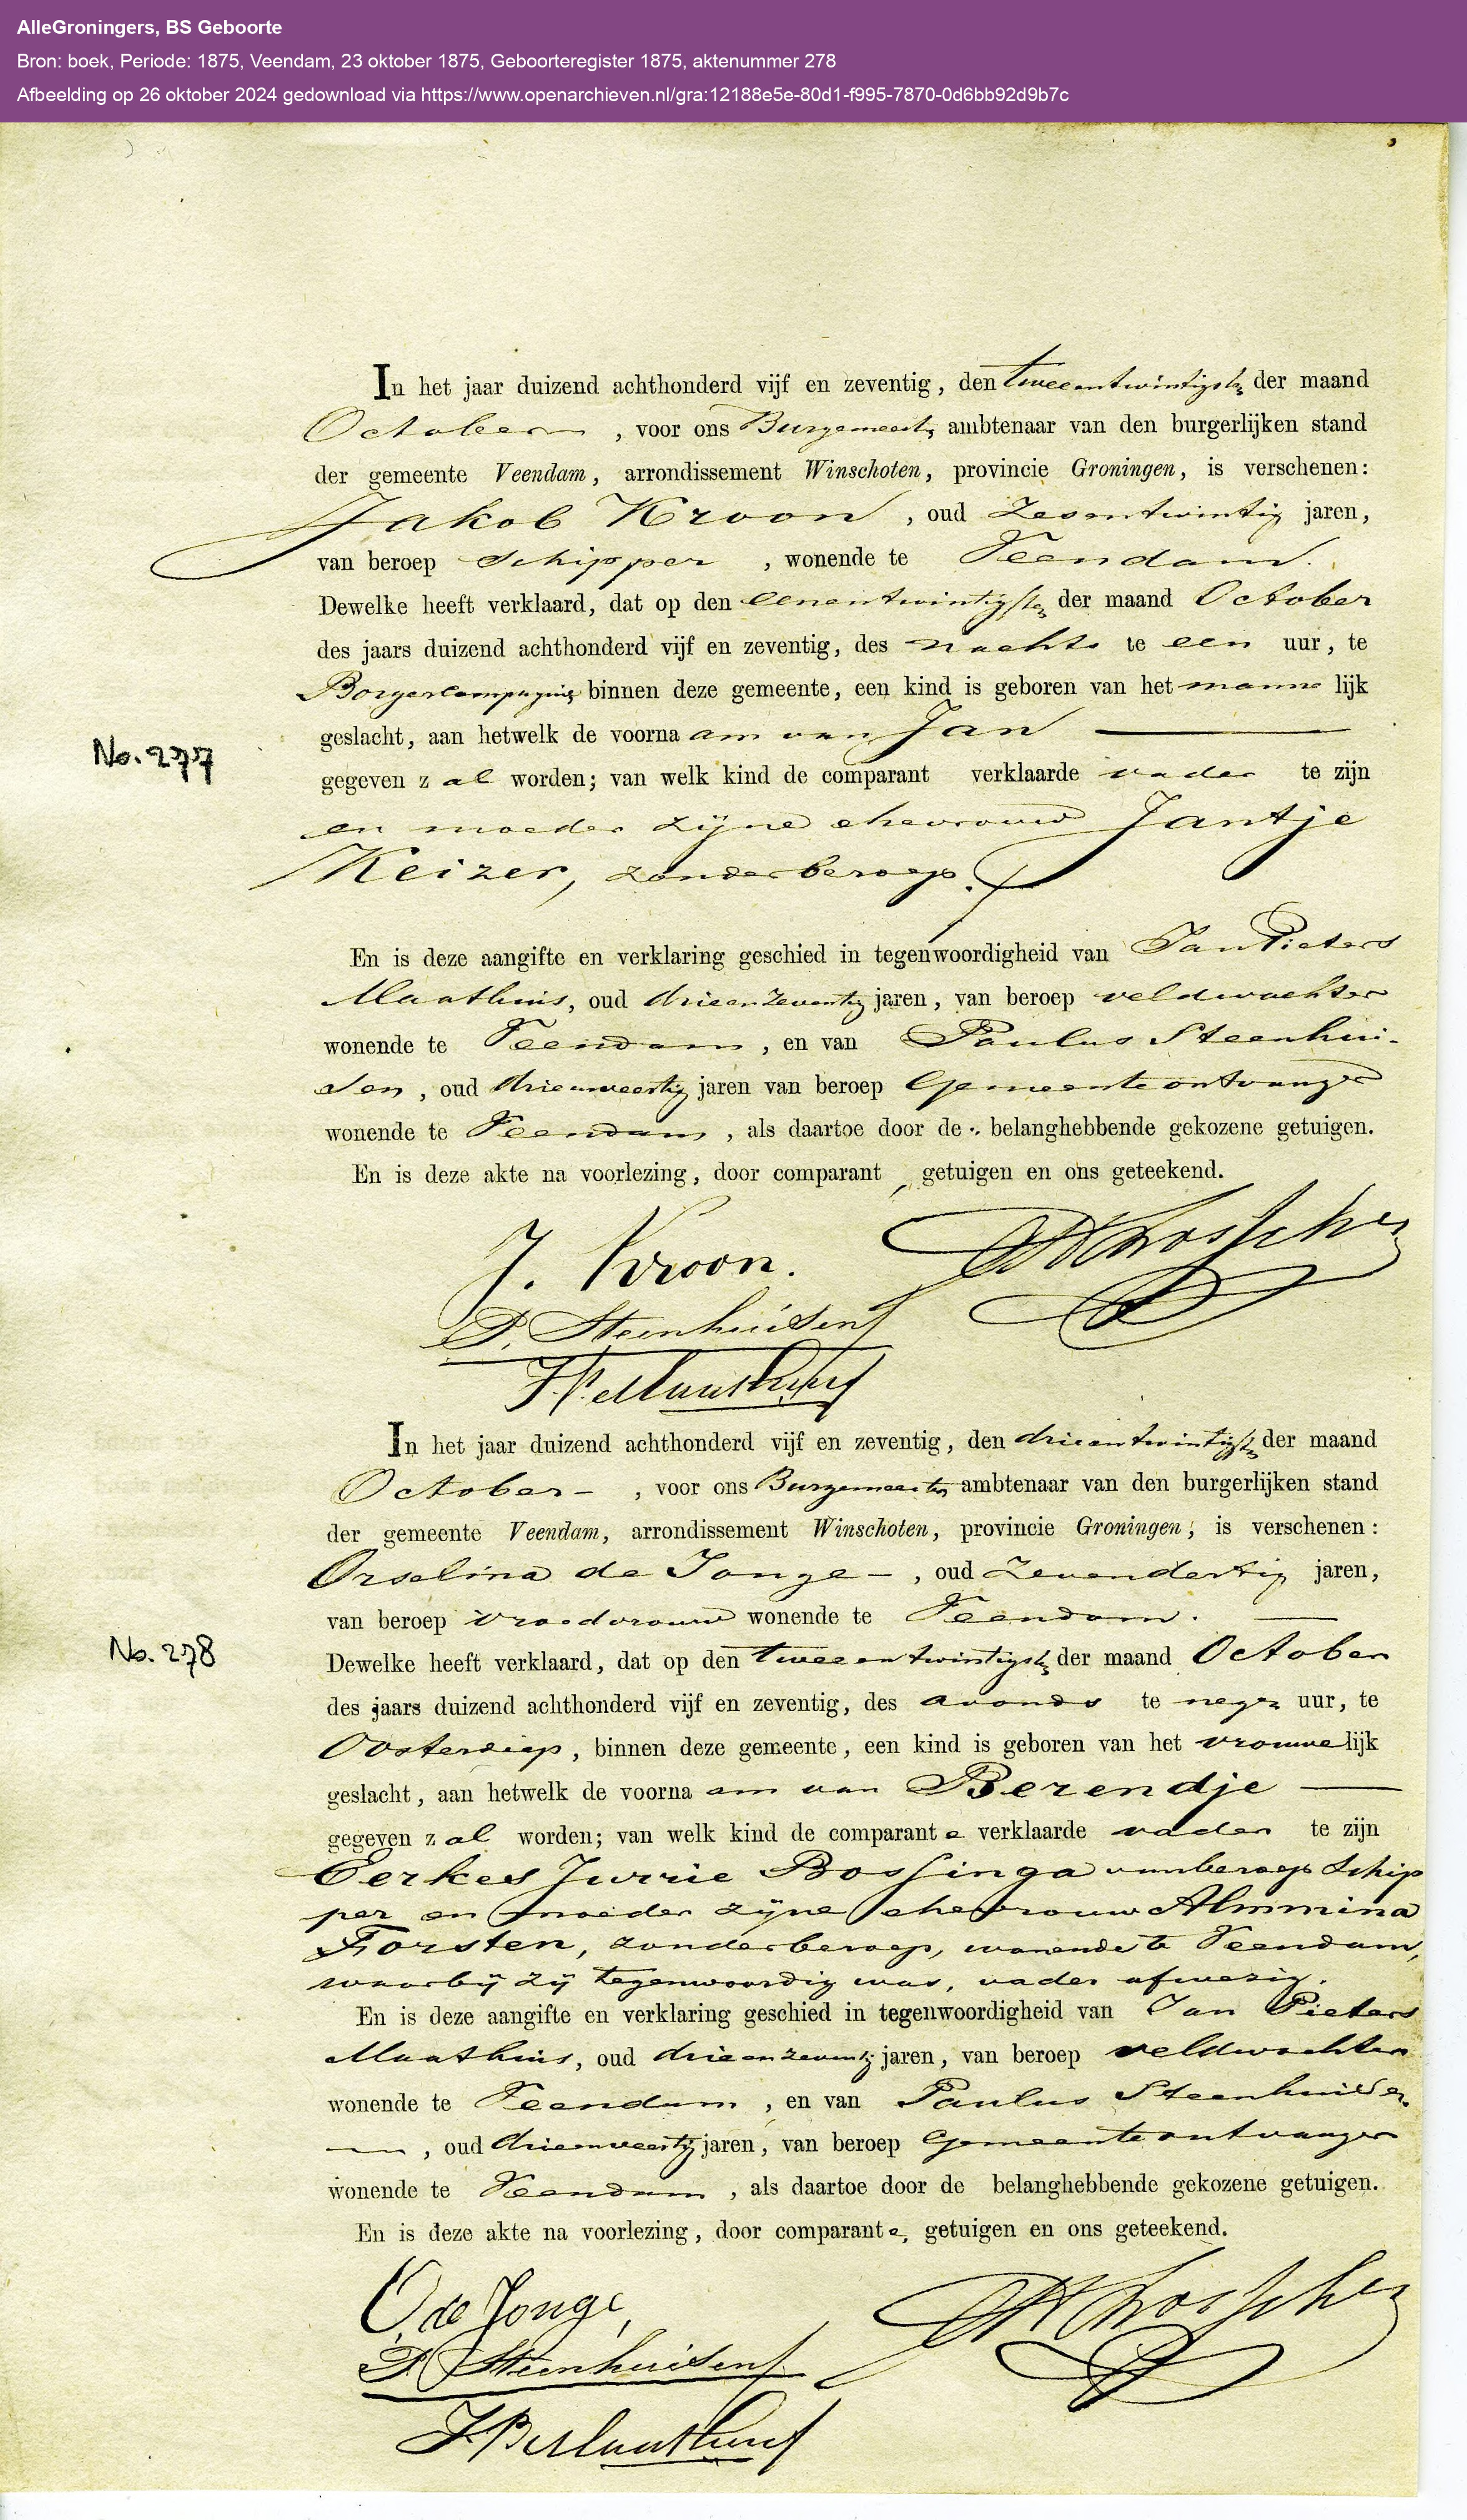 AlleGroningers, BS Geboorte
Bron: boek, Periode: 1875, Veendam, 23 oktober 1875, Geboorteregister 1875, aktenummer 278
Afbeelding op 26 oktober 2024 gedownload via https://www.openarchieven.nl/gra:12188e5e-80d1-f995-7870-0d6bb92d9b7c
In het jaar duizend achthonderd vijf en zeventig, den tweeentwintigsten der maand
October, voor ons Burgemeester ambtenaar van den burgerlijken stand
der gemeente Veendam, arrondissement Winschoten, provincie Groningen, is verschenen:
Jakob Kroon, oud Zesentwintig jaren,
van beroep Schipper, wonende te Veendam.
Dewelke heeft verklaard, dat op den eenentwintigsten der maand October
des jaars duizend achthonderd vijf en zeventig, des nachts te een uur, te
Borgercompagnie binnen deze gemeente, een kind is geboren van het mannelijk
geslacht, aan hetwelk de voornaam van Jan
No. 277
gegeven zal worden; van welk kind de comparant verklaarde vader te zijn
en moeder zijne ehevrouw Jantje
Keizer, zonder beroep.
En is deze aangifte en verklaring geschied in tegenwoordigheid van Jan Pieters
Maathuis, oud drieenzeventig jaren, van beroep veldwachter
wonende te Veendam, en van Paulus Steenhui-
sen, oud drieenveertig jaren van beroep Gemeenteontvanger
wonende te Veendam, als daartoe door de belanghebbende gekozene getuigen.
En is deze akte na voorlezing, door comparant, getuigen en ons geteekend.
J. Kroon.
P. Steenhuisen
J.P. Maathuis
In het jaar duizend achthonderd vijf en zeventig, den drieentwintigsten der maand
October, voor ons Burgemeester ambtenaar van den burgerlijken stand
der gemeente Veendam, arrondissement Winschoten, provincie Groningen, is verschenen:
Orselina de Jonge, oud Zevendertig jaren,
van beroep vroedvrouw wonende te Veendam.
No. 278
Dewelke heeft verklaard, dat op den tweeentwintigsten der maand October
des jaars duizend achthonderd vijf en zeventig, des avonds te negen uur, te
Oosterdiep, binnen deze gemeente, een kind is geboren van het vrouwelijk
geslacht, aan hetwelk de voornaam van Berendje
gegeven zal worden; van welk kind de comparante verklaarde vader te zijn
Eerkes Jurrie Bossinga van beroep Schip
per en moeder zijne ehevrouw Almmina
Forsten, zonder beroep, wonende te Veendam,
waarbij zij tegenwoordig was, vader afwezig.
En is deze aangifte en verklaring geschied in tegenwoordigheid van Jan Pieters
Maathuis, oud drieenzeventig jaren, van beroep veldwachter
wonende te Veendam, en van Paulus Steenhuisen
, oud drieenveertig jaren, van beroep Gemeenteontvanger
wonende te Veendam, als daartoe door de belanghebbende gekozene getuigen.
En is deze akte na voorlezing, door comparante, getuigen en ons geteekend.
O de Jonge
P. Steenhuisen
J.P. Maathuis